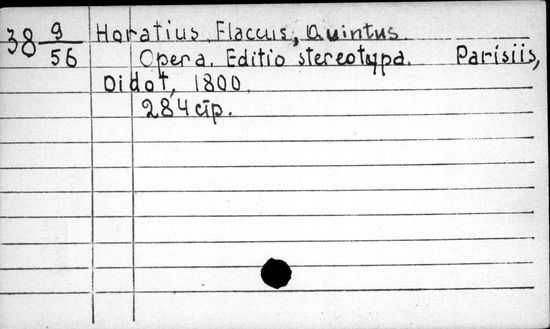 38 9/56 Horatius Flaccus, Quintus.
Opera. Editio stereotypa. Parisiis,
Didot, 1800.
284 стр.